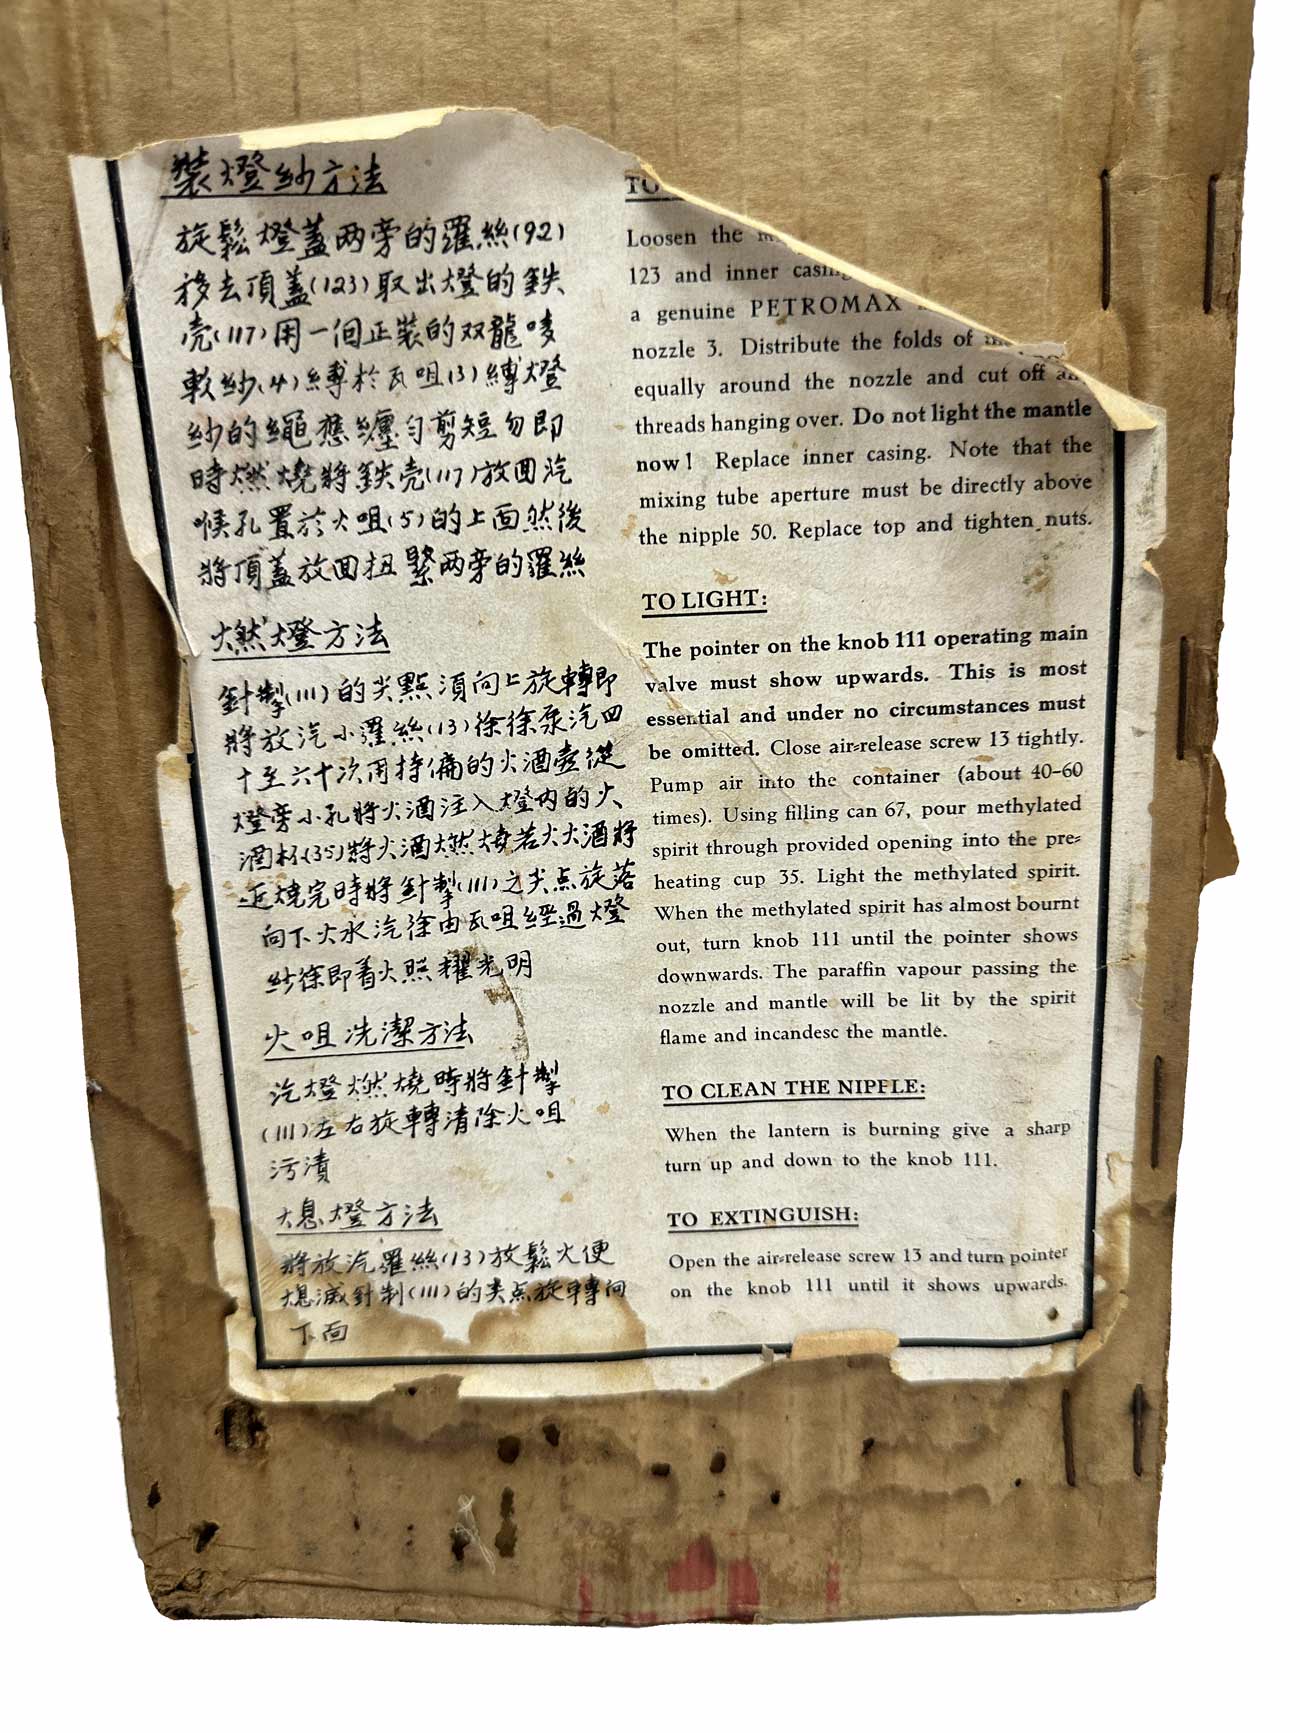 裝燈紗方法
旋鬆燈蓋两旁的羅絲(92)
移去頂蓋(123)取出燈的鉄
壳(117)用一個正裝的双龍唛
軟紗(4)縛於瓦咀(3)縛燈
紗的繩應纏勻剪短勿即
時燃燒將鉄壳(117)放囬汽
喉孔置於火咀(5)的上面然後
將頂蓋放囬扭緊两旁的羅絲
燃燈方法
針掣(111)的尖點須向上旋轉即
將放汽小羅絲(13)徐徐泵汽四
十至六十次用特備的火酒壺從
燈旁小孔將火酒注入燈内的火
酒杯(35)將火酒燃燒若火酒將
近燒完時將針掣(111)之尖点旋落
向下火水汽徐由瓦咀經過燈
紗徐即着火照耀光明
火咀洗潔方法
汽燈燃燒時將針掣
(111)左右旋轉清除火咀
污漬
熄燈方法
將放汽羅絲(13)放鬆火便
熄滅針制(111)的尖点旋轉向
下面
TO
Loosen the
123 and inner casing
a genuine PETROMAX
nozzle 3. Distribute the folds of
equally around the nozzle and cut off any
threads hanging over. Do not light the mantle
now! Replace inner casing. Note that the
mixing tube aperture must be directly above
the nipple 50. Replace top and tighten nuts.
TO LIGHT:
The pointer on the knob 111 operating main
valve must show upwards. This is most
essential and under no circumstances must
be omitted. Close air-release screw 13 tightly.
Pump air into the container (about 40-60
times). Using filling can 67, pour methylated
spirit through provided opening into the pre-
heating cup 35. Light the methylated spirit.
When the methylated spirit has almost bournt
out, turn knob 111 until the pointer shows
downwards. The paraffin vapour passing the
nozzle and mantle will be lit by the spirit
flame and incandesc the mantle.
TO CLEAN THE NIPFLE:
When the lantern is burning give a sharp
turn up and down to the knob 111.
TO EXTINGUISH:
Open the air-release screw 13 and turn pointer
on the knob 111 until it shows upwards.